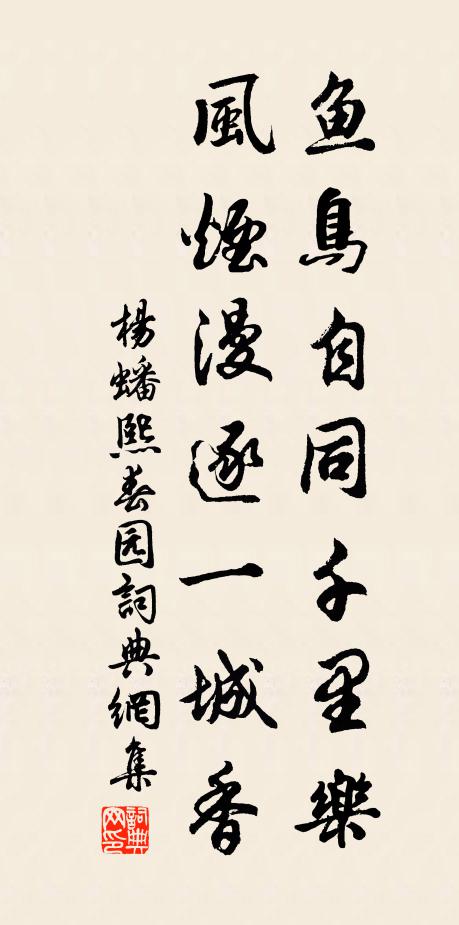 魚鳥自同千里樂
風煙漫逐一城香
楊蟠熙春园詞典網集
詞典网印